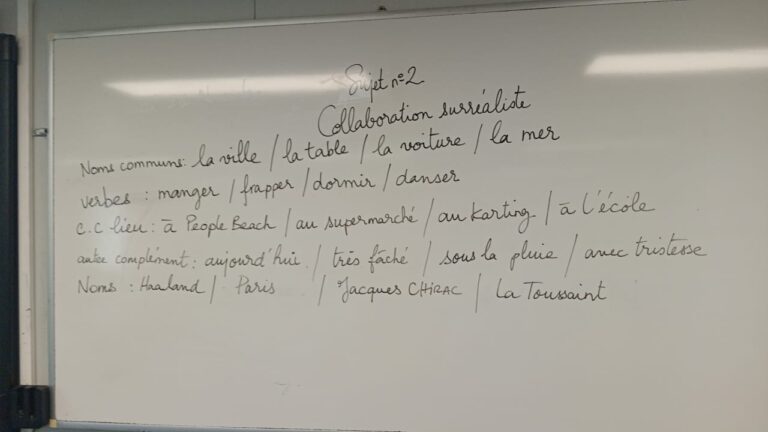 Sujet n°2
Collaboration surréaliste
Noms communs: la ville / la table / la voiture / la mer
verbes : manger / frapper / dormir / danser
C.C lieu : à People Beach / au supermarché / au karting / à l'école
autre complément : aujourd'hui / très fâché / sous la pluie / avec tristesse
Noms : Haaland / Paris / Jacques CHIRAC / La Toussaint